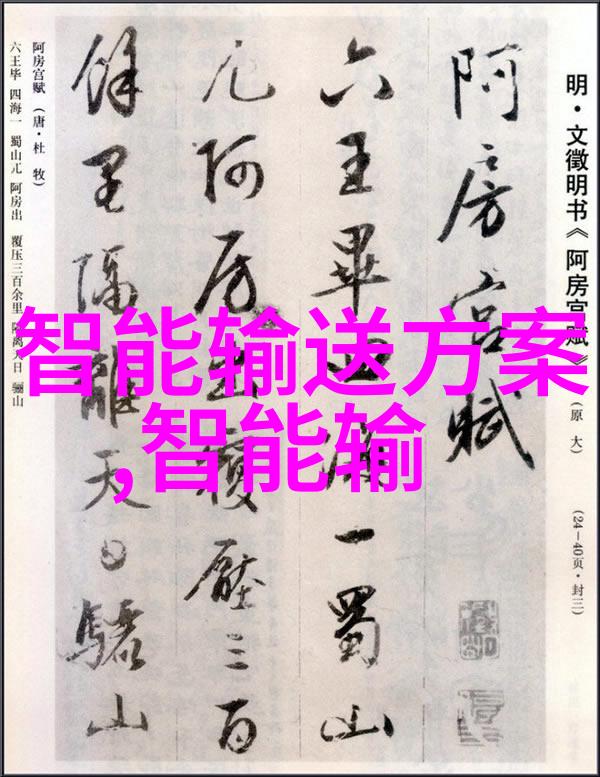 明·文徵明书《阿房宫赋》(原大) (24—40页·封三)
阿房宫赋
六王畢四海一蜀山
兀阿房出覆壓三百
餘里隔離天日驪山
阿房宫赋(唐·杜牧)
六王毕 四海一 蜀山兀 阿房出 覆压三百余里 隔离天日 骊山
智能输送方案
,智能输